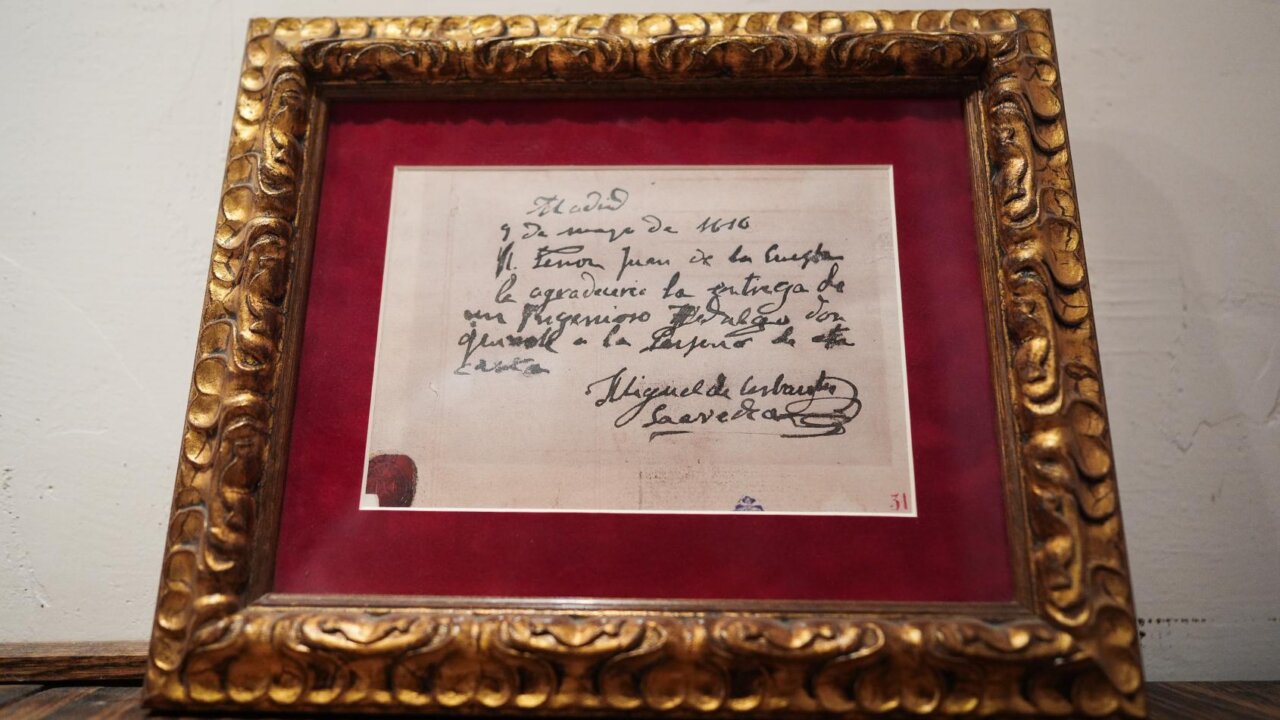 Madrid
9 de mayo de 1610
Sr. Señor Juan de la Cuesta
le agradeceria la entrega de
un Yngenioso Hidalgo don
quixote a la Persona de esta
carta
Miguel de Cerbantes
Saavedra
31